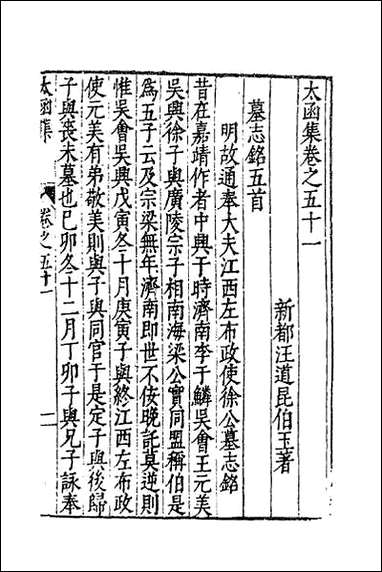 太函集卷之五十一
新都汪道昆伯玉著
墓志銘五首
明故通奉大夫江西左布政使徐公墓志銘
昔在嘉靖作者中興于時濟南李于鱗吳會王元美
吳興徐子與廣陵宗子相南海梁公實同盟稱伯是
爲五子云及宗梁無年濟南即世不佞晚託莫逆則
惟吳會吳興戊寅冬十月庚寅子與終江西左布政
使元美有弟敬美則與子與同官于是定子與後歸
子與喪未墓也巳卯冬十二月丁卯子與兄子詠奉
太函集
卷之五十一
一